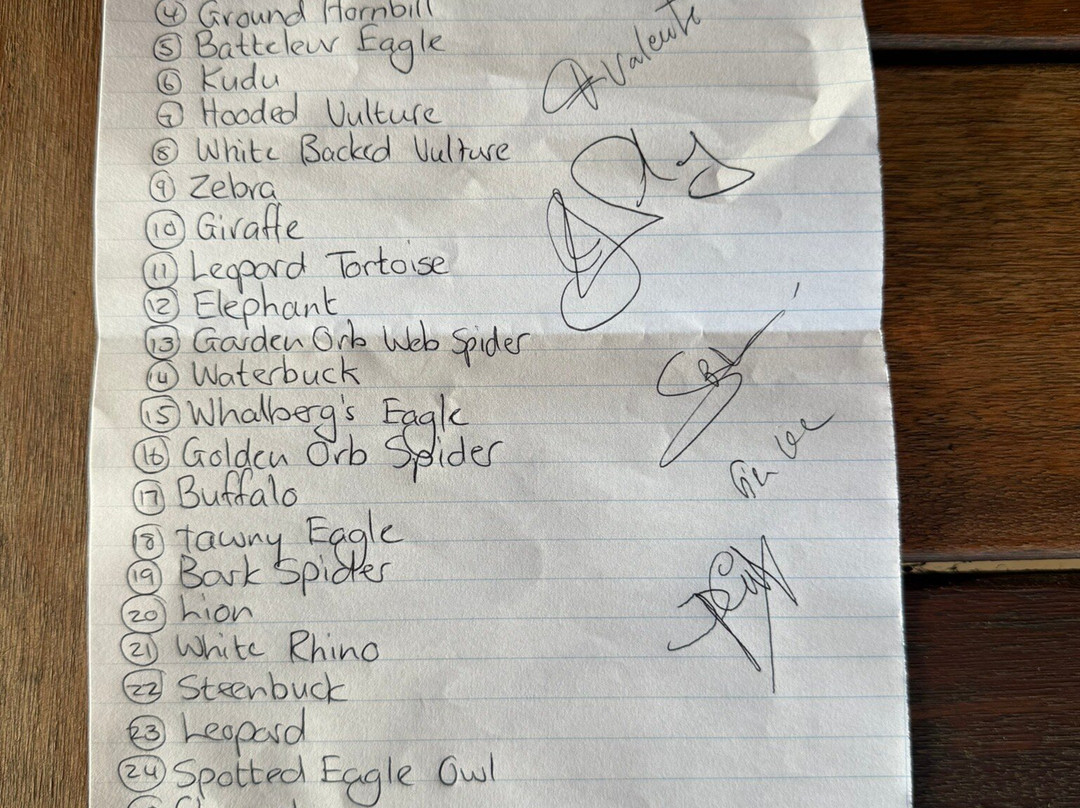 ④ Ground Hornbill
⑤ Batteleur Eagle
⑥ Kudu
⑦ Hooded Vulture
⑧ White Backed Vulture
⑨ Zebra
⑩ Giraffe
⑪ Leopard Tortoise
⑫ Elephant
⑬ Garden Orb Web Spider
⑭ Waterbuck
⑮ Whalberg's Eagle
⑯ Golden Orb Spider
⑰ Buffalo
⑱ tawny Eagle
⑲ Bark Spider
⑳ Lion
㉑ White Rhino
㉒ Steenbuck
㉓ Leopard
㉔ Spotted Eagle Owl
Valente